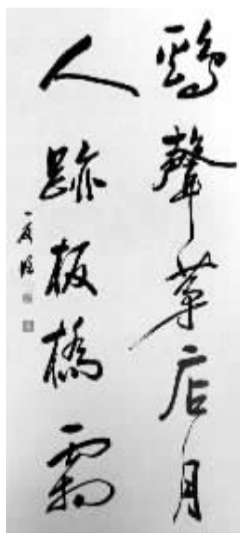 鷄聲茅店月
人跡板橋霜